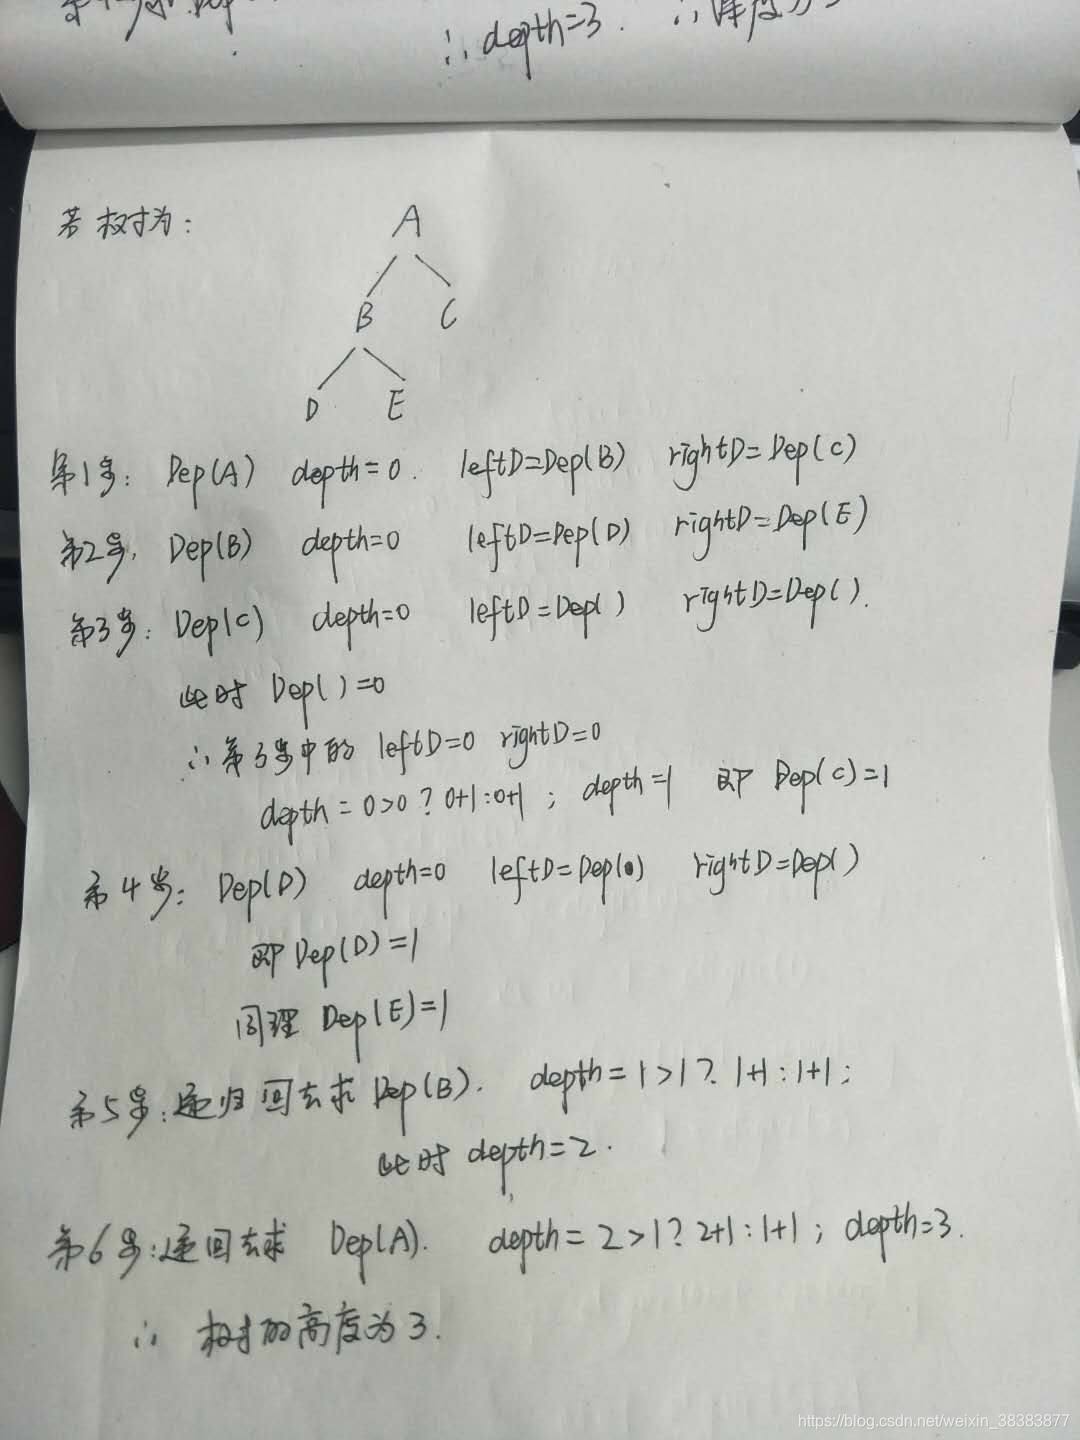 ∴ depth=3. ∴深度为3
若树为:
A
B C
D E
第1步: Dep(A) depth=0. leftD=Dep(B) rightD=Dep(C)
第2步, Dep(B) depth=0 leftD=Dep(D) rightD=Dep(E)
第3步: Dep(C) depth=0 leftD=Dep( ) rightD=Dep( ).
此时 Dep( )=0
∴第3步中的 leftD=0 rightD=0
depth = 0>0 ? 0+1:0+1 ; depth=1 即 Dep(C)=1
第4步: Dep(D) depth=0 leftD=Dep( ) rightD=Dep( )
即 Dep(D)=1
同理 Dep(E)=1
第5步:递归回去求 Dep(B). depth=1>1?. 1+1:1+1;
此时 depth=2.
第6步:递回去求 Dep(A). depth= 2>1? 2+1:1+1; depth=3.
∴ 树的高度为3.
https://blog.csdn.net/weixin_38383877